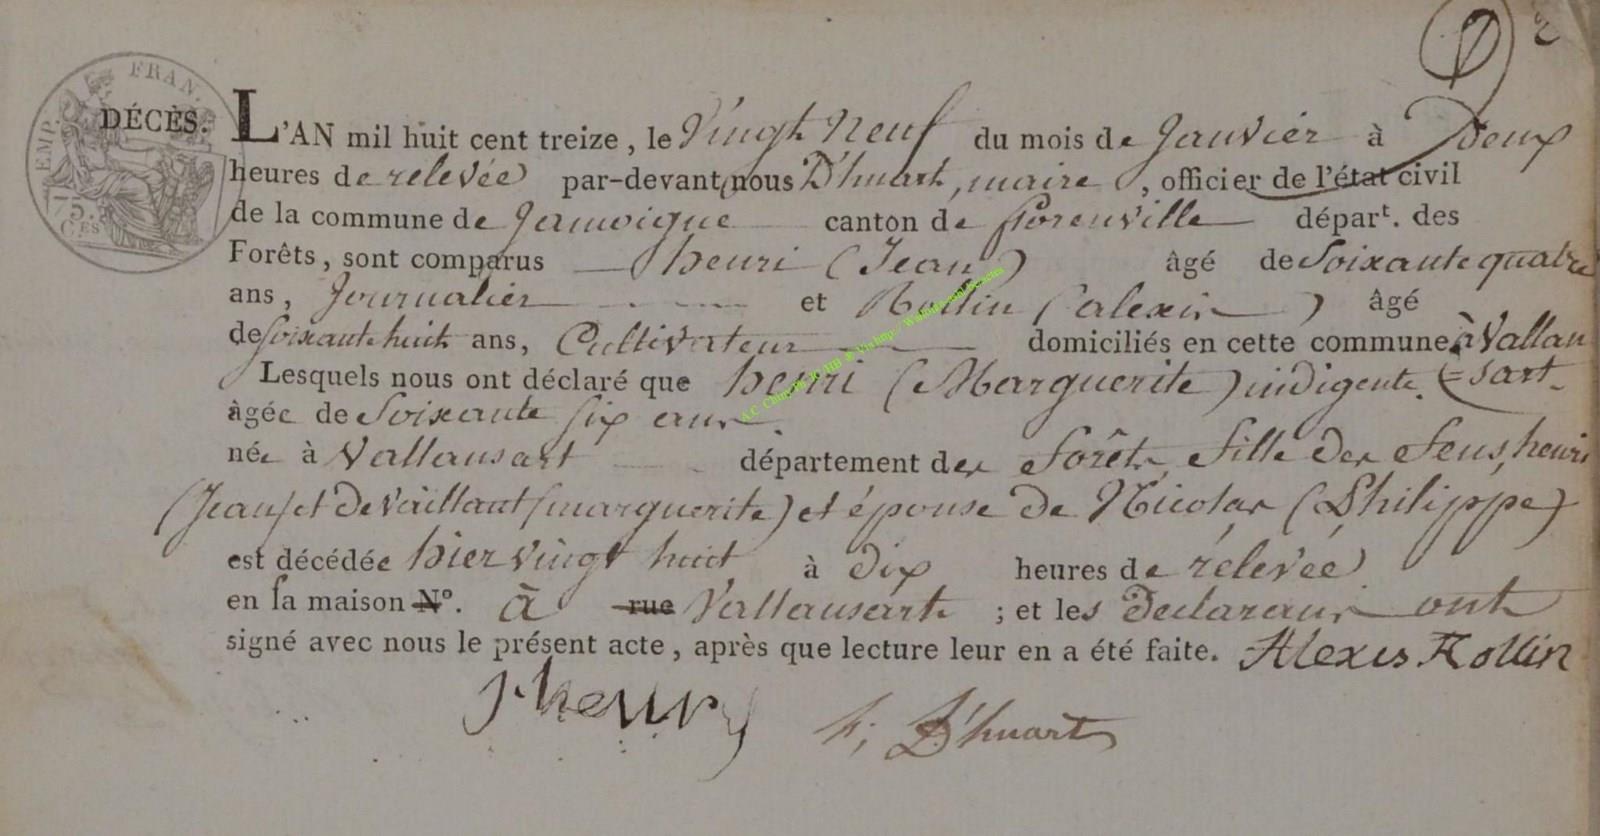 2
EMP. FRAN.
75.
C.ES
DÉCÈS.
L'AN mil huit cent treize, le Vingt neuf du mois de Janvier à Deux
heures de relevée par-devant nous D'huart, maire, officier de l'état civil
de la commune de Jamoigne canton de florenville départ. des
Forêts, sont comparus henri (Jean) âgé de Soixante quatre
ans, Journalier et Rollin (alexis) âgé
de soixante huit ans, Cultivateur domiciliés en cette commune à Vallan
Lesquels nous ont déclaré que henri (Marguerite) indigente. (=sart
âgée de Soixante six ans.
née à Vallansart département des forêts, fille des feus, henri
(Jean) et de Vaillant (marguerite) et épouse de Nicolas (Philippe)
est décédée hier vingt huit à dix heures de rélevée
en sa maison N°. à rue Vallansart ; et les déclarans ont
signé avec nous le présent acte, après que lecture leur en a été faite. Alexis Rollin
J henry h; D'huart